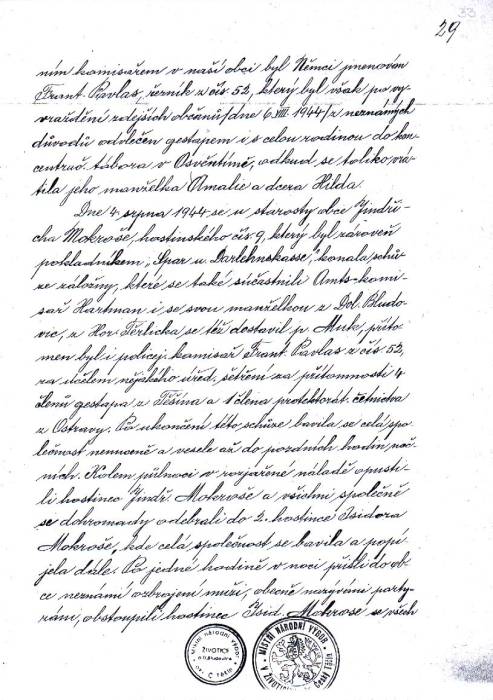 29
ním komisařem v naší obci byl Němci jmenován
Frant. Pavlas, řezník z čís. 52, který byl však po vy-
vraždění zdejších občanů /dne 6.VIII. 1944/ z neznámých
důvodů odvlečen gestapem i s celou rodinou do kon-
centrač. tábora v Osvěntímě, odkud se toliko vrá-
tila jeho manželka Amalie a dcera Hilda.
Dne 4. srpna 1944 se u starosty obce Jindři-
cha Mokroše, hostinského čís. 9, který byl zároveň
pokladníkem „Spar u. Darlehnskasse", konala schů-
ze záložny, které se také súčastnili Amts-komi-
sař Hartman i se svou manželkou z Dol. Bludo-
vic, z Hor. Těrlicka se též dostavil p. Muk, příto-
men byl i policej. komisař Frant. Pavlas z čís. 52,
za účelem nějakého úřed. šetření za přítomnosti 4
členů gestapa z Těšína a 1 člena protektorát. četnictva
z Ostravy. Po ukončení této schůze bavila se celá spo-
lečnost nenuceně a vesele až do pozdních hodin noč-
ních. Kolem půlnoci v rozjařené náladě opusti-
li hostinec Jindř. Mokroše a všichni společně
se dohromady odebrali do 2. hostince Isidora
Mokroše, kde celá společnost se bavila a popí-
jela dále. Po jedné hodině v noci přišli do ob-
ce neznámí ozbrojení muži, obecně nazýváni party-
záni, obstoupili hostinec Isid. Mokroše se všech
MÍSTNÍ NÁRODNÍ VÝBOR
ŽIVOTICE
MÍSTNÍ NÁRODNÍ VÝBOR
V ŽIVOTICÍCH